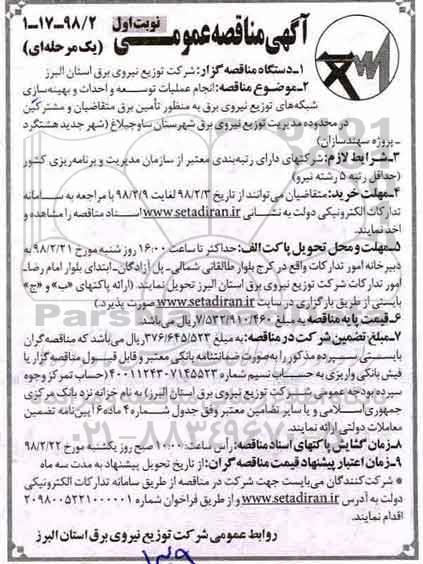 آگهی مناقصه عمومی
نوبت اول
۱-۱۷-۹۸/۲
(یک مرحله‌ای)
۱-دستگاه مناقصه گزار: شرکت توزیع نیروی برق استان البرز
۲-موضوع مناقصه: انجام عملیات توسعه و احداث و بهینه‌سازی
شبکه‌های توزیع نیروی برق به منظور تأمین برق متقاضیان و مشترکین
در محدوده مدیریت توزیع نیروی برق شهرستان ساوجبلاغ (شهر جدید هشتگرد
ـ پروژه سهندسازان)
۳-شرایط لازم: شرکتهای دارای رتبه‌بندی معتبر از سازمان مدیریت و برنامه‌ریزی کشور
(حداقل رتبه ۵ رشته نیرو)
۴-مهلت خرید: متقاضیان می‌توانند از تاریخ ۹۸/۲/۳ لغایت ۹۸/۲/۹ با مراجعه به سامانه
تدارکات الکترونیکی دولت به نشانی www.setadiran.ir اسناد مناقصه را مشاهده و
اخذ نمایند.
۵-مهلت و محل تحویل پاکت الف: حداکثر تا ساعت ۱۶:۰۰ روز شنبه مورخ ۹۸/۲/۲۱ به
دبیرخانه امور تدارکات واقع در کرج بلوار طالقانی شمالی ـ پل آزادگان ـ ابتدای بلوار امام رضا ـ
امور تدارکات شرکت توزیع نیروی برق استان البرز تحویل نمایند. (ارائه پاکتهای «ب» و «ج»
بایستی از طریق بارگزاری در سایت www.setadiran.ir صورت پذیرد.)
۶-قیمت پایه مناقصه به مبلغ ۷/۵۳۲/۹۱۰/۴۶۰ ریال می‌باشد.
۷-مبلغ تضمین شرکت در مناقصه: به مبلغ ۳۷۶/۶۴۵/۵۲۳ ریال می‌باشد که مناقصه‌گران
بایستی سپرده مذکور را به صورت ضمانتنامه بانکی معتبر و قابل قبول مناقصه گزار یا
فیش بانکی واریزی به حساب نسیم شماره ۴۰۰۱۱۲۴۳۰۷۱۴۵۵۲۳ (حساب تمرکز وجوه
سپرده بودجه عمومی شرکت توزیع نیروی برق استان البرز) به نام خزانه نزد بانک مرکزی
جمهوری اسلامی و یا سایر تضامین معتبر وفق جدول شماره ۴ ماده ۶ آیین‌نامه تضمین
معاملات دولتی ارائه نمایند.
۸-زمان گشایش پاکتهای اسناد مناقصه: رأس ساعت ۱۰:۰۰ صبح روز یکشنبه مورخ ۹۸/۲/۲۲
۹-زمان اعتبار پیشنهاد قیمت مناقصه گران: از تاریخ تحویل پیشنهاد به مدت سه ماه
* شرکت‌کنندگان می‌بایست جهت شرکت در مناقصه از طریق سامانه تدارکات الکترونیکی
دولت به آدرس www.setadiran.ir و از طریق فراخوان شماره ۲۰۹۸۰۰۵۲۲۱۰۰۰۰۰۱
اقدام نمایند.
روابط عمومی شرکت توزیع نیروی برق استان البرز